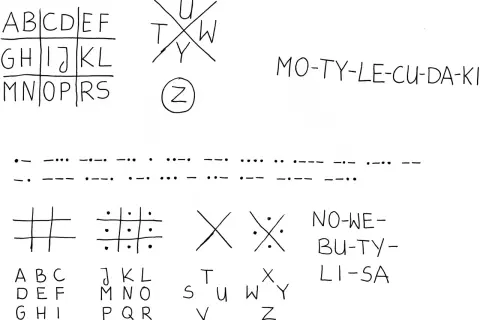 AB CD EF
GH IJ KL
MN OP RS
U
T W
Y
Z
MO-TY-LE-CU-DA-KI
NO-WE-
BU-TY-
LI-SA
A B C J K L T X
D E F M N O S U W Y
G H I P Q R V Z